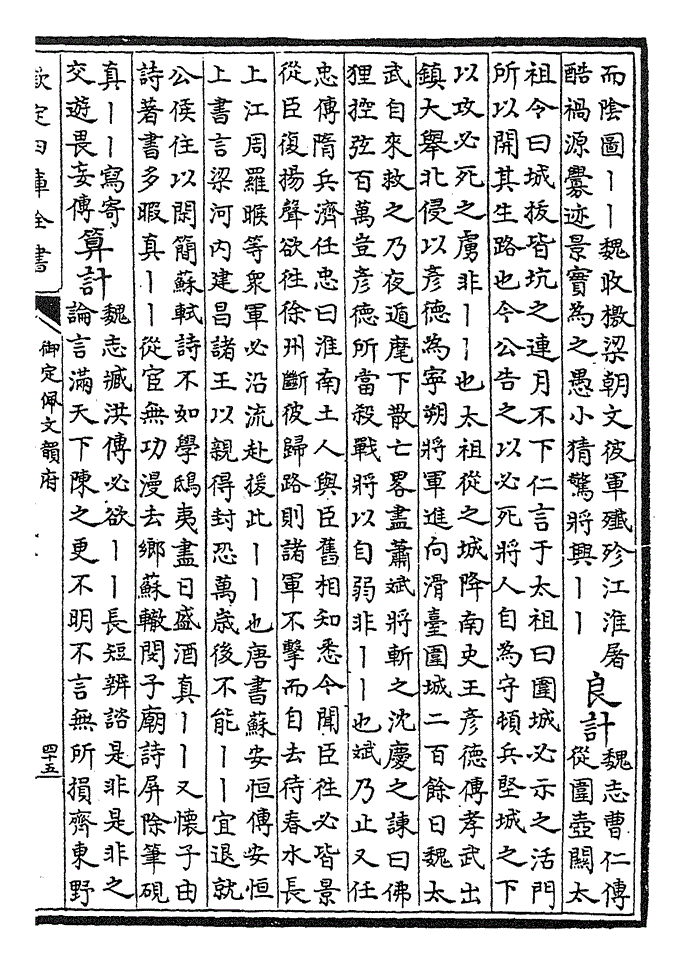 而陰圖丨丨魏收檄梁朝文彼軍殲殄江淮屠
酷禍源釁迹景實為之愚小猜驚將興丨丨
良計
魏志曹仁傳
從圍壺關太
祖令曰城拔皆坑之連月不下仁言于太祖曰圍城必示之活門
所以開其生路也今公告之以必死將人自為守頓兵堅城之下
以攻必死之虜非丨丨也太祖從之城降南史王彥德傳孝武出
鎮大舉北侵以彥德為寧朔將軍進向滑臺圍城二百餘日魏太
武自來救之乃夜遁麾下散亡畧盡蕭斌將斬之沈慶之諫曰佛
狸控弦百萬豈彥德所當殺戰將以自弱非丨丨也斌乃止又任
忠傳隋兵濟任忠曰淮南土人與臣舊相知悉今聞臣徃必皆景
從臣復揚聲欲徃徐州斷彼歸路則諸軍不擊而自去待春水長
上江周羅睺等衆軍必沿流赴援此丨丨也唐書蘇安恒傳安恒
上書言梁河內建昌諸王以親得封恐萬歲後不能丨丨宜退就
公侯任以閑簡蘇軾詩不如學鴟夷盡日盛酒真丨丨又懷子由
詩著書多暇真丨丨從宦無功漫去鄉蘇轍閔子廟詩屏除筆硯
真丨丨寫寄
交遊畏妄傳
算計
魏志臧洪傳必欲丨丨長短辨諮是非是非之
論言滿天下陳之更不明不言無所損齊東野
欽定四庫全書
御定佩文韻府
四十五